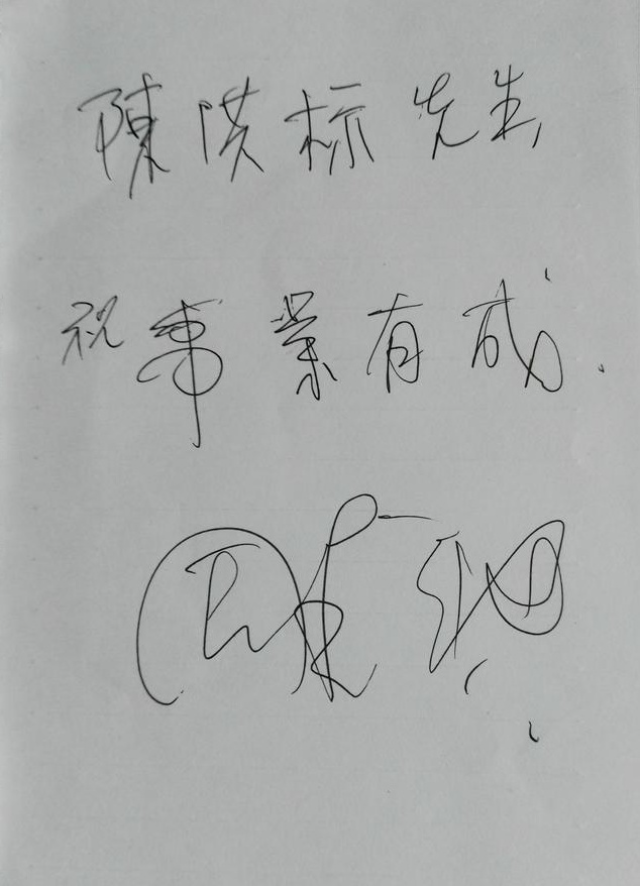 陳洪标先生,
祝事業有成.